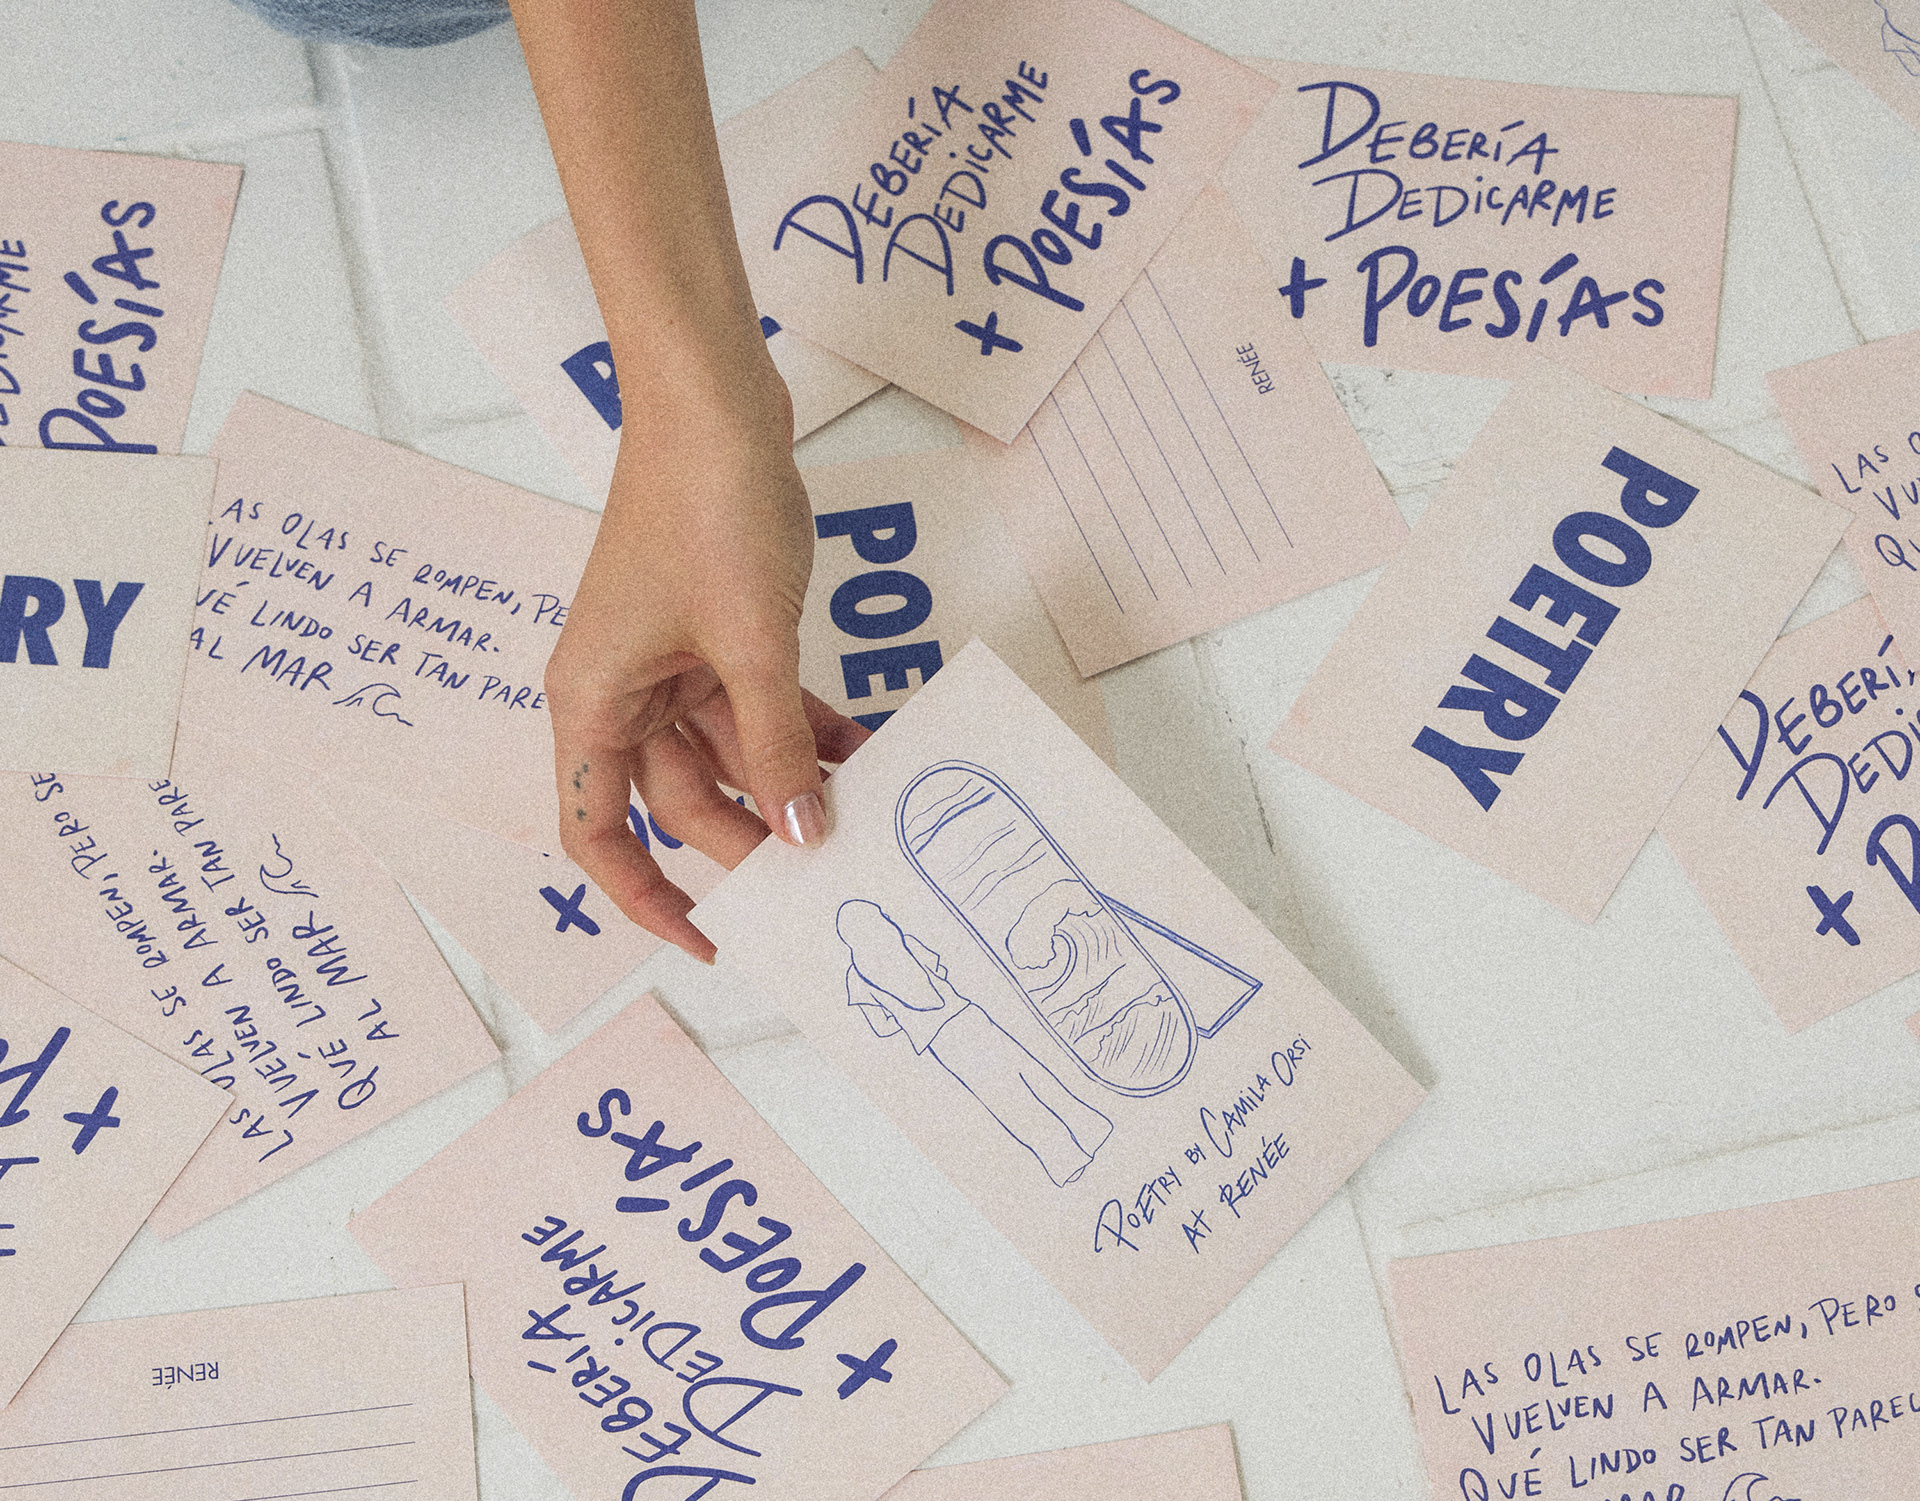 DEBERÍA
DEDICARME
+ POESÍAS
DEBERÍA
DEDICARME
+ POESÍAS
POESÍAS
RENÉE
POETRY
RY
AS OLAS SE ROMPEN, PE
VUELVEN A ARMAR.
VÉ LINDO SER TAN PARE
AL MAR
POE
LAS
VU
QU
DEBERÍ
DEDI
+ P
LAS OLAS SE ROMPEN, PERO SE
VUELVEN A ARMAR.
QUÉ LINDO SER TAN PARE
AL MAR
+
POETRY BY CAMILA ORSI
AT RENÉE
+
DEBERÍA
DEDICARME
+ POESÍAS
RENÉE
LAS OLAS SE ROMPEN, PERO
VUELVEN A ARMAR.
QUÉ LINDO SER TAN PAREC
MAR